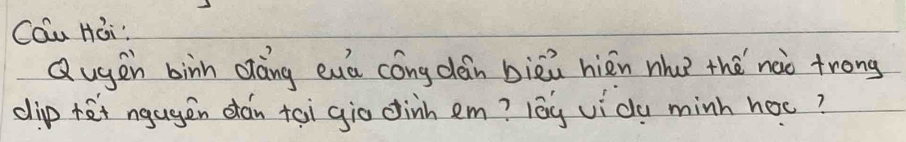 Câu Hỏi:
Quyền bình đẳng của công dân biểu hiện như thế nào trong
dịp tết nguyên đán tại gia đình em? lấy ví dụ minh học?